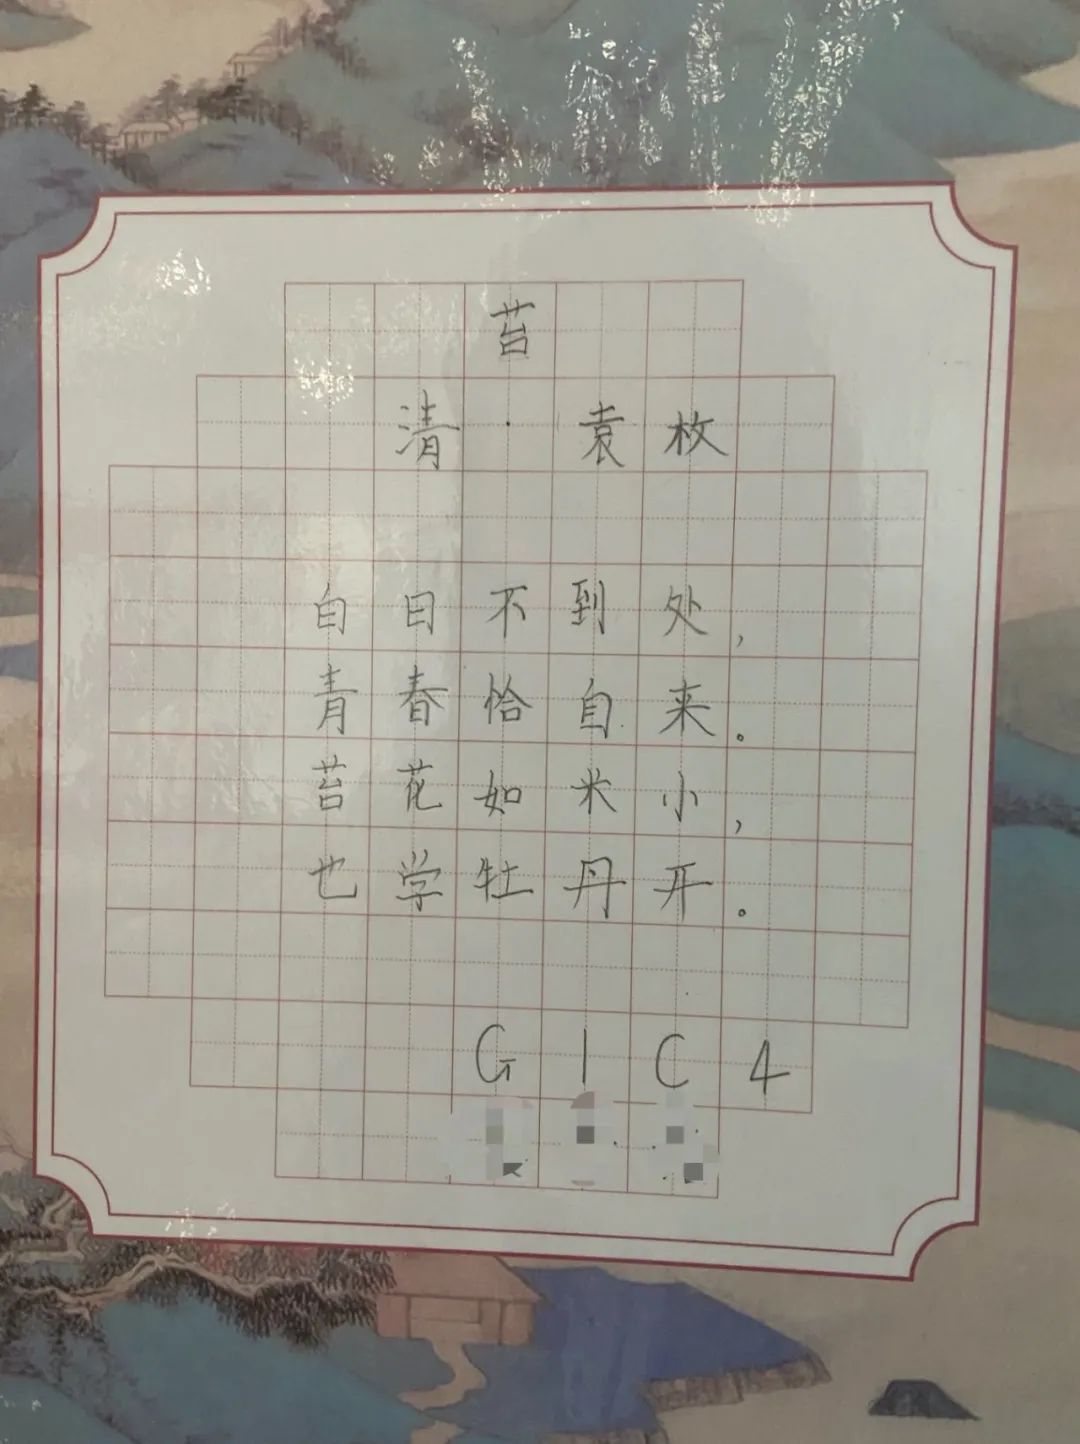 苔
清·袁枚
白日不到处,
青春恰自来。
苔花如米小,
也学牡丹开。
G1C4